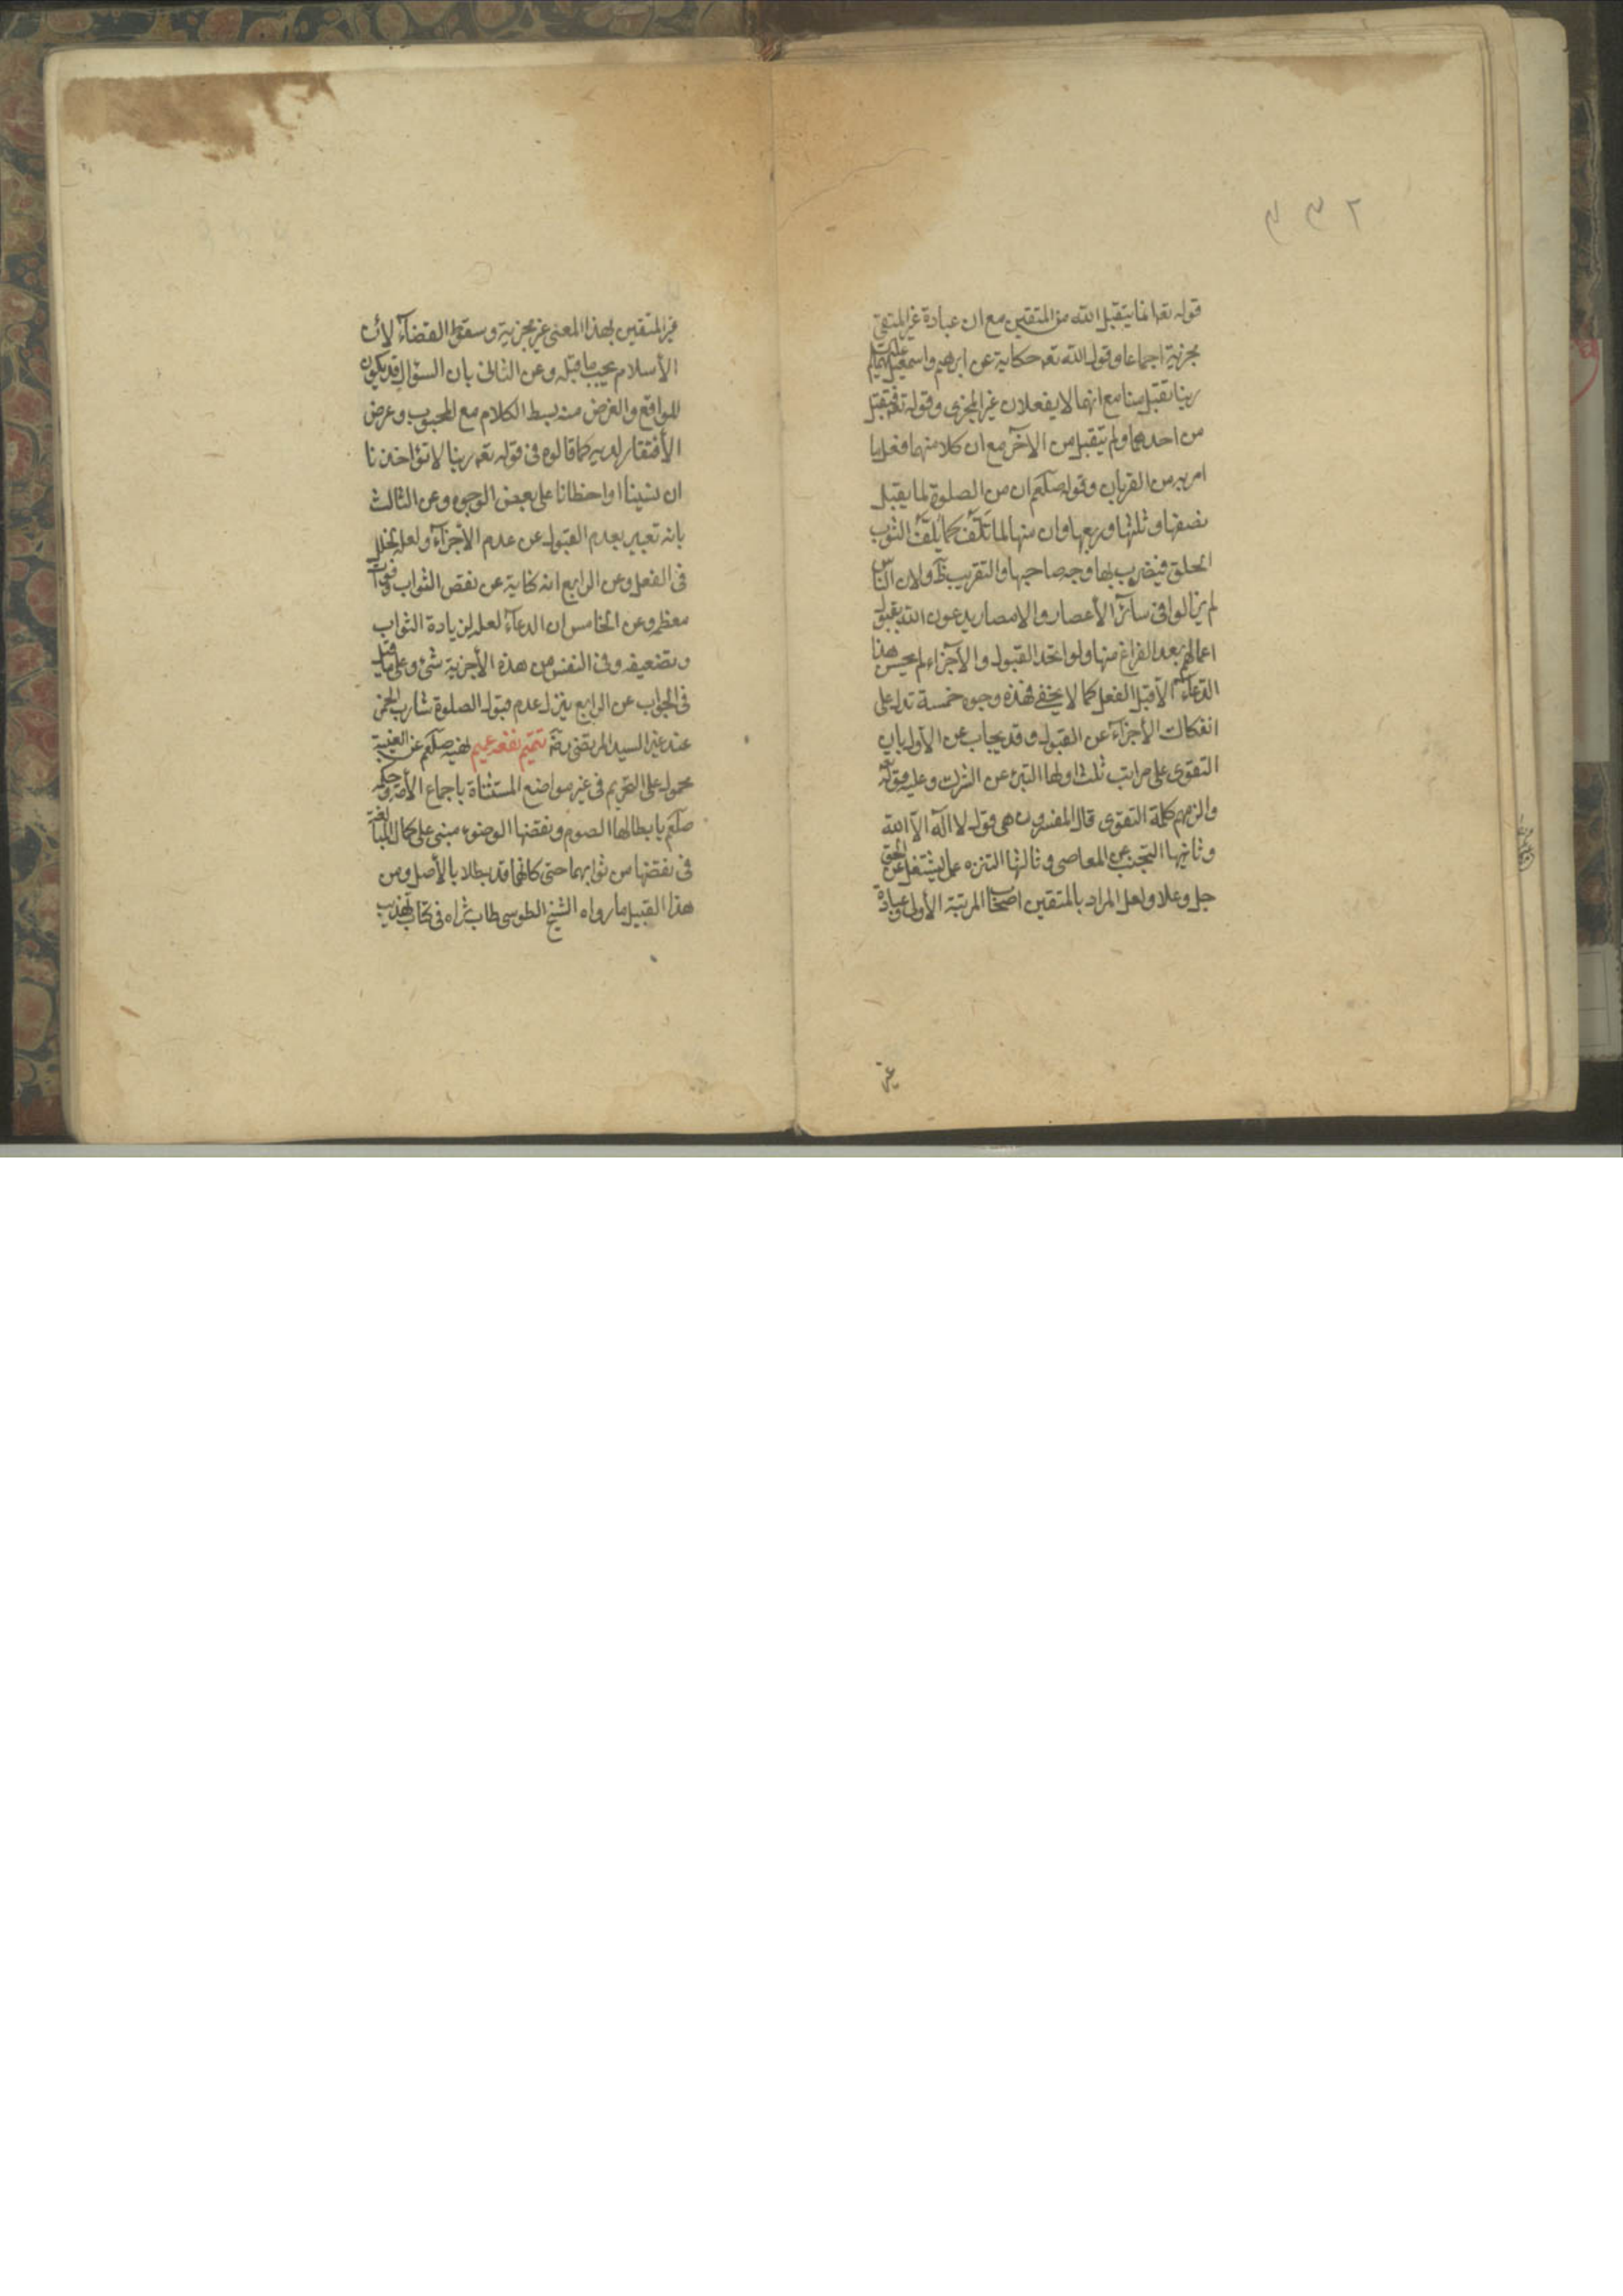 ٢٣٣
قوله تعه انما يتقبل الله من المتقين مع ان عبادة غير المتقى
مجزية اجماعا وقول الله تعه حكاية عن ابرهيم واسمعيل عليهما
ربنا تقبل منا مع انهما لا يفعلان غير المجزى وقوله تعه فتقبل
من احدهما ولم يتقبل من الآخر مع ان كلا منهما فعل ما
امر به من القربان وقوله صلعم ان من الصلوة لما يقبل
نصفها وثلثها وربعها وان منها لما تلف كما يلف الثوب
الخلق فيضرب بها وجه صاحبها والتقريب ظ ولان الناس
لم يزالوا فى سائر الأعصار والامصار يدعون الله بقبول
اعمالهم بعد الفراغ منها ولو اتحد القبول والأجزاء لم يحسن هذا
الدعاء الا قبل الفعل كما لا يخفى فهذه وجوه خمسة تدل على
انفكاك الأجزاء عن القبول وقد يجاب عن الأول بان
التقوى على مراتب ثلث اولها التبرئ عن الشرك وعليه قوله تعه
والزمهم كلمة التقوى قال المفسرون هى قول لا اله الا الله
وثانيها التجنب عن المعاصى وثالثها التنزه عما يشغل عن الحق
جل وعلا ولعل المراد بالمتقين اصحاب المرتبة الأولى وعبادة
غير
غير المتقين بهذا المعنى غير مجزية وسقوط القضاء لأن
الأسلام يجب ما قبله وعن الثانى بان السؤال قد يكون
للواقع والغرض منه بسط الكلام مع المحبوب وعرض
الأفتقار لديه كما قالوه فى قوله تعه ربنا لا تؤاخذنا
ان نسينا او اخطانا على بعض الوجوه وعن الثالث
بانه تعبير بعدم القبول عن عدم الأجزاء ولعله لخلل
فى الفعل وعن الرابع انه كناية عن نقص الثواب وفوات
معظمه وعن الخامس ان الدعاء لعله لزيادة الثواب
وتضعيفه وفى النفس من هذه الأجزية شئ وعلى ما قيل
فى الجواب عن الرابع ينزل عدم قبول الصلوة شارب الخمر
عند غير السيد المرتضى رضه تتميم نفعه عميم نهيه صلعم عن الغيبة
محمول على التحريم فى غير مواضع المستثناة باجماع الأمة وحكمه
صلعم بابطالها الصوم ونقضها الوضوء مبنى على كمال المبالغة
فى نقصها من ثوابهما حتى كانهما قد بطلا بالأصل ومن
هذا القبيل ما رواه الشيخ الطوسى طاب ثراه فى كتاب تهذيب